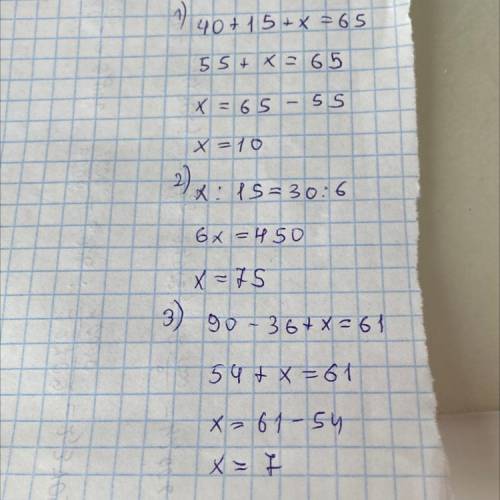 1) 40+15+x=65
55+x=65
x=65-55
x=10
2) x:15=30:6
6x=450
x=75
3) 90-36+x=61
54+x=61
x=61-54
x=7